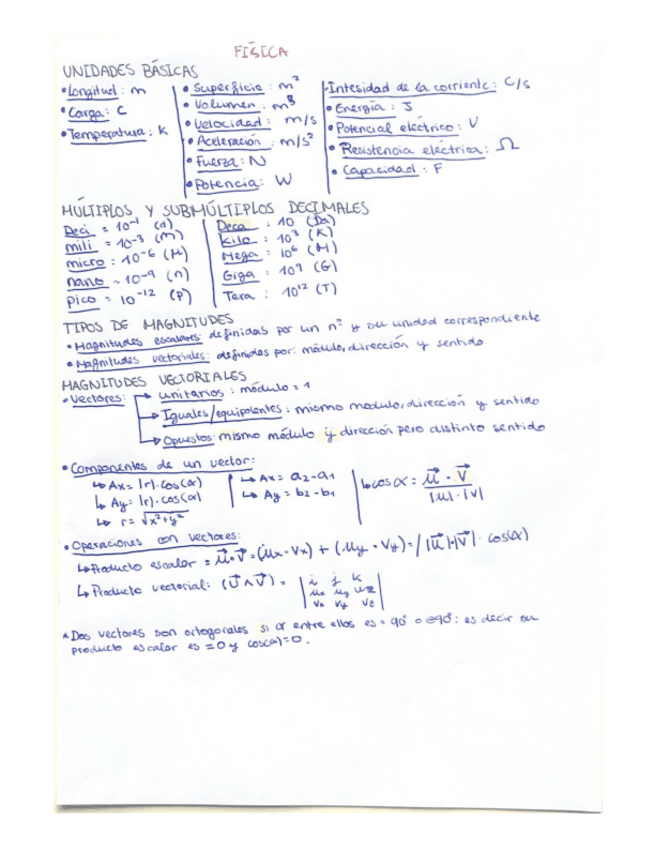 FÍSICA
UNIDADES BÁSICAS
• Longitud : m
• Carga : C
• Temperatura : K
• Superficie : m²
• Volumen : m³
• Velocidad : m/s
• Aceleración : m/s²
• Fuerza : N
• Potencia : W
• Intesidad de la corriente : C/s
• Energía : J
• Potencial eléctrico : V
• Resistencia eléctrica : Ω
• Capacidad : F
MÚLTIPLOS Y SUBMÚLTIPLOS DECIMALES
Deci = 10⁻¹ (d)
mili = 10⁻³ (m)
micro : 10⁻⁶ (M)
nano = 10⁻⁹ (n)
pico = 10⁻¹² (p)
Deca : 10 (Da)
Kilo : 10³ (K)
Mega : 10⁶ (M)
Giga : 10⁹ (G)
Tera : 10¹² (T)
TIPOS DE MAGNITUDES
• Magnitudes escalares: definidas por un nº y su unidad correspondiente
• Magnitudes vectoriales: definidas por: módulo, dirección y sentido
MAGNITUDES VECTORIALES
• Vectores: → unitarios : módulo = 1
→ Iguales/equipolentes : mismo modulo, dirección y sentido
→ Opuestos: mismo módulo y dirección pero distinto sentido
• Componentes de un vector:
↳ Ax = |r|·cos(α)
↳ Ay = |r|·cos(α)
↳ r = √x²+y²
↳ Ax = a₂-a₁
↳ Ay = b₂-b₁
↳ cos α = u⃗ · v⃗ / |u|·|v|
• Operaciones con vectores:
↳ Producto escalar = u⃗·v⃗ = (ux·vx) + (uy·vy) = |u⃗|·|v⃗|·cos(α)
↳ Producto vectorial: (u⃗ ∧ v⃗) = | i j k
ux uy uz
vx vy vz |
* Dos vectores son ortogonales si α entre ellos es = 90° o -90°: es decir su
producto escalar es = 0 y cos(α)=0.